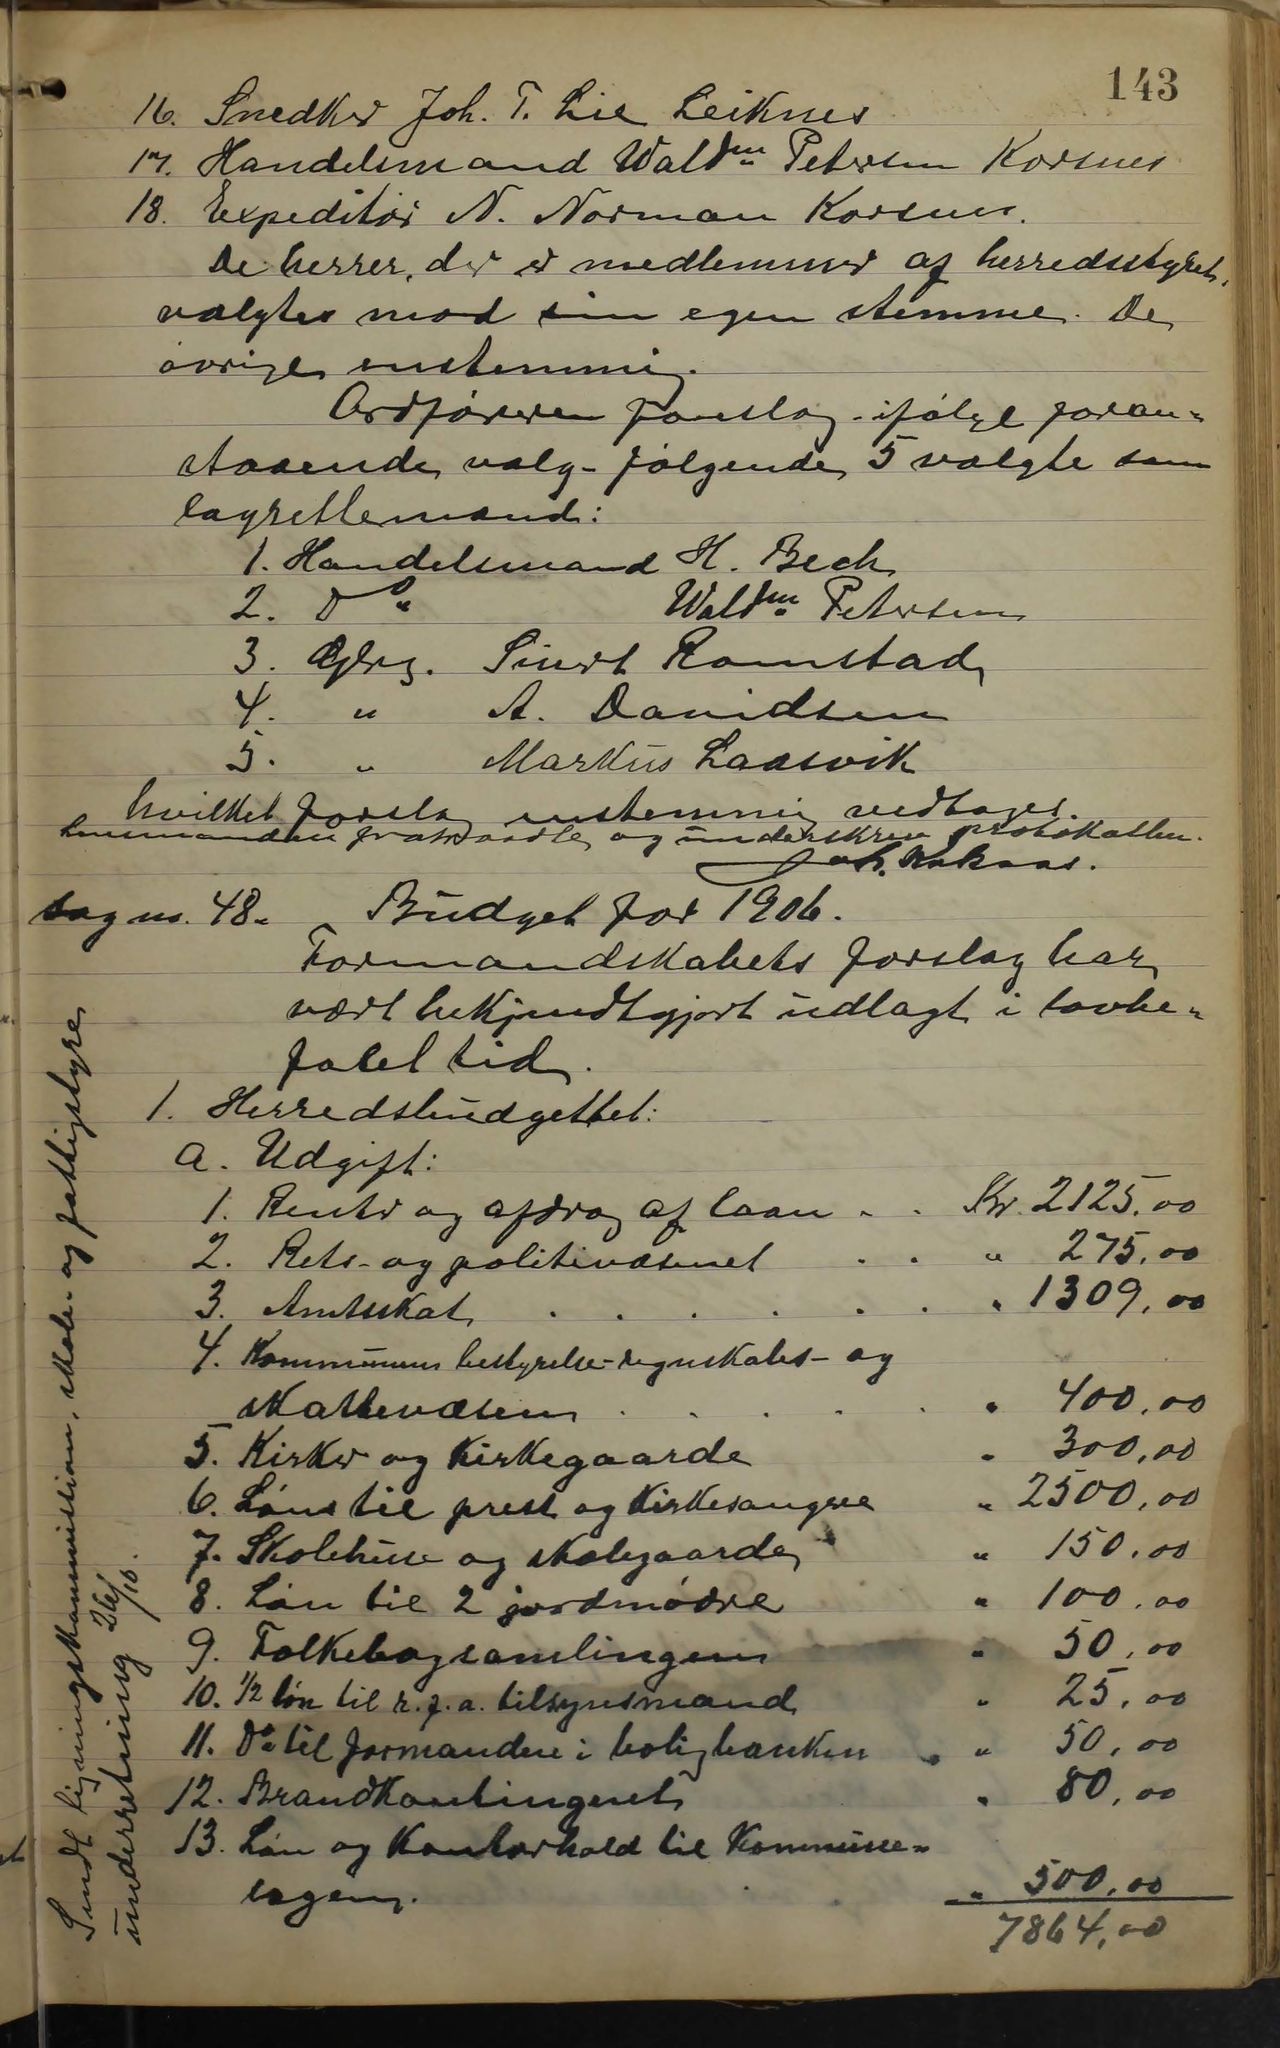 143
16. Snedker Joh. T. Lie Leiknes
17. Handelsmand Waldm. Petersen Korsnes
18. Expeditør N. Norman Korsnes.
De herrer, der er medlemmer af herredsstyret,
valgtes mod sin egen stemme. De
øvrige enstemmig.
Ordføreren foreslog ifølge foran-
staaende valg følgende 5 valgte som
lagrettemænd:
1. Handelsmand H. Bech
2. Do Waldm. Petersen
3. Gbrg. Sivert Ramstad
4. " A. Davidsen
5. " Markus Laasvik
hvilket forslag enstemmig vedtages.
Lensmanden fratraadte og underskrev protokollen.
Joh.
Sag no. 48. Budget for 1906.
Formandskabets forslag har
vært bekjendtgjort udlagt i lovbe-
falet tid.
1. Herredsbudgettet:
a. Udgift:
1. Renter og afdrag af laan . . Kr. 2125.00
2. Rets- og politivæsenet . . " 275,00
3. Amtsskat . . . . . . " 1309,00
4. Kommunens bestyrelse- regnskabs- og
skattevæsen . . . . . . " 400,00
5. Kirker og kirkegaarde " 300,00
6. Løns til prest og kirkesangere " 2500,00
7. Skolehuse og skolegaarde " 150.00
8. Løn til 2 jordmødre " 100.00
9. Folkebogsamlingen " 50,00
10. 1/2 løn til r.f.a. tilsynsmand " 25,00
11. Do til formanden i boligbanken . " 50,00
12. Brandkontingent " 80,00
13. Løn og kontorhold til kommune-
lægen. " 500,00
7864,00
Sendt ligningskommission, skole- og fattigstyre
underretning 26/10.